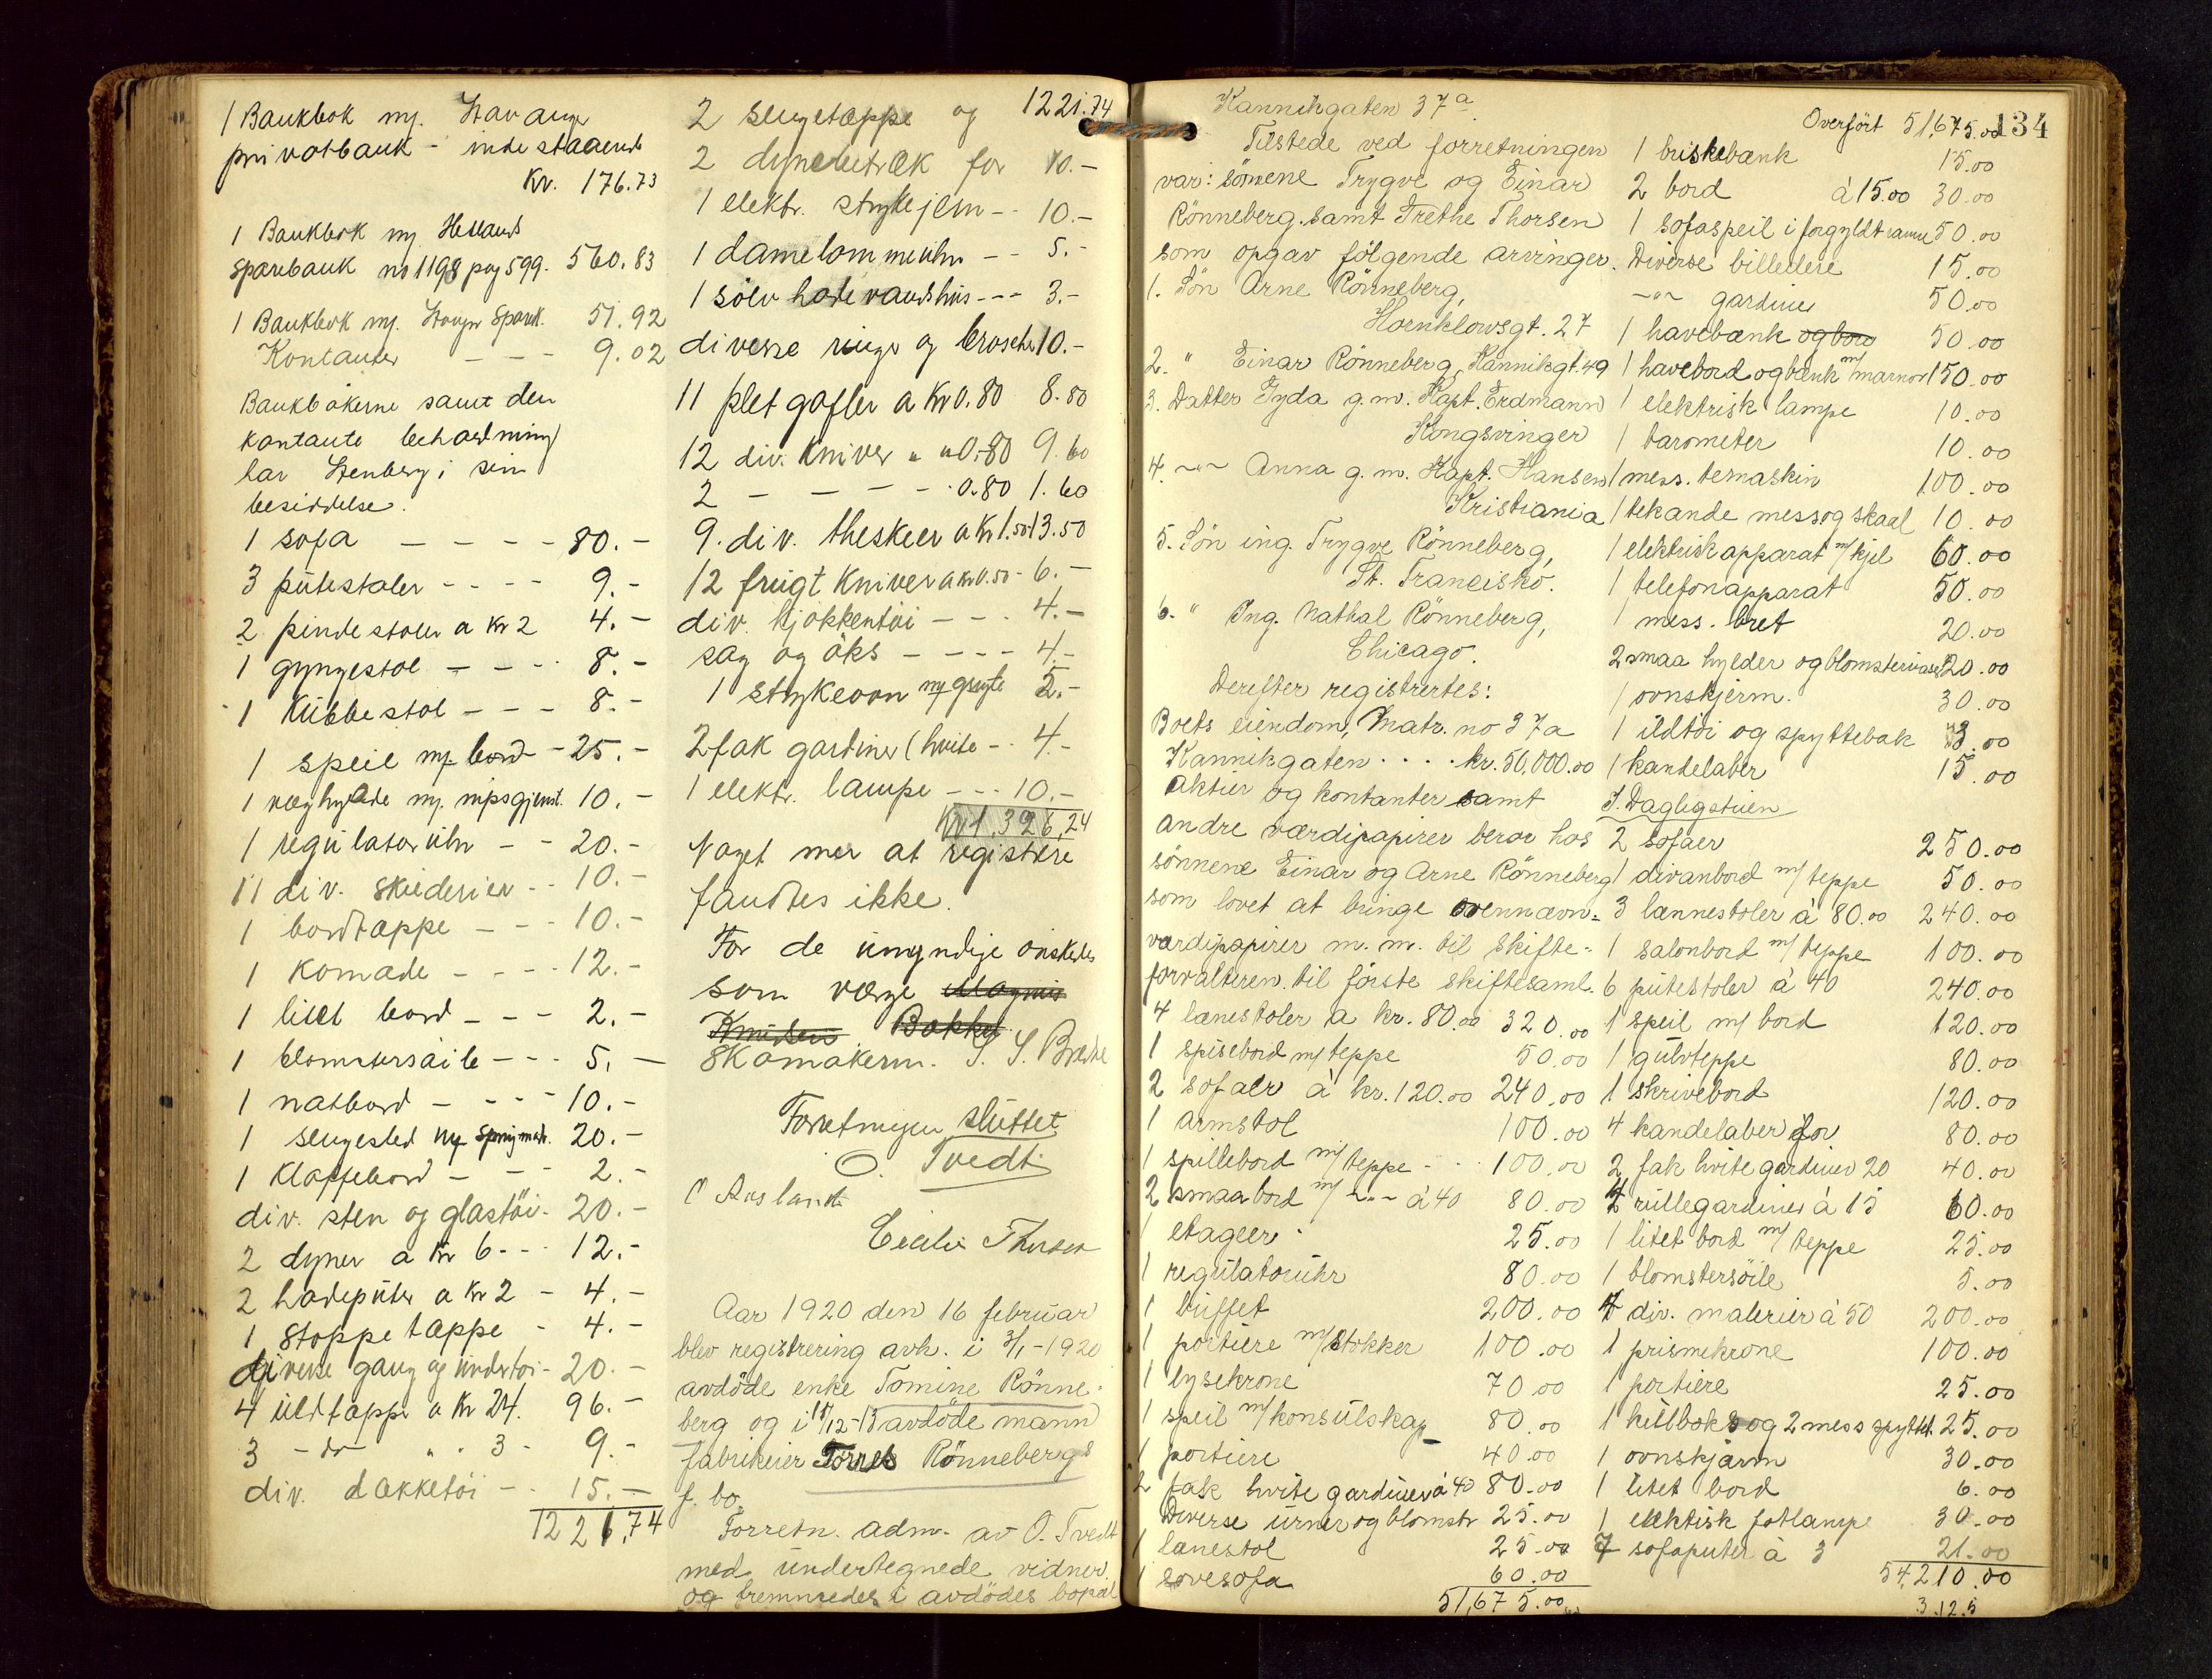 1 Bankbok m/. Stavanger
privatbank - indestaaende
Kr. 176.73
1 Bankbok m/ Hetlands
sparebank no 1198 pag 599. 560.83
1 Bankbok m/. Stavgr Spark. 51.92
Kontanter - - - 9.02
Bankbøkerne samt den
kontante beholdning
har Stenberg i sin
besiddelse.
1 sofa - - - - 80.-
3 pütestoler - - - - 9.-
2 pindestoler a Kr 2 4.-
1 gyngestol - - - 8.-
1 Kübbestol - - - 8.-
1 speil m/ bord - 25.-
1 væghylde m/. nipsgjenst. 10.-
1 regülatorühr - - 20.-
11 div. skilderier - - 10.-
1 bordtæppe - - 10.-
1 Komode - - - - 12.-
1 litet bord - - - 2.-
1 blomstersøile - - - 5.-
1 natbord - - - - 10.-
1 sengested m/ springmadr. 20.-
1 Klaffebord - - - 2.-
div. sten og glastöi - 20.-
2 dyner a Kr 6 - - - 12.-
2 hodepüter a Kr 2 - 4.-
1 stoppetæppe - 4.-
diverse gang og ündertøi - 20.-
4 üldtæpper a Kr 24. 96.-
3 - do - " " 3 - 9.-
div. dækketöi - - 15.-
1221,74
2 sengetæppe og 1221.74
2 dynebetræk for 10.-
1 elektr. strykejern - - 10.-
1 damelommeühr - - 5.-
1 sölv hodevandshüs - - - 3.-
diverse ringer og broscher 10.-
11 pletgafler a Kr 0.80 8.80
12 div. Kniver " " 0.80 9.60
2 - - - - 0.80 1.60
9. div. theskeer a Kr 1.50 13.50
12 frügt Kniver a Kr 0.50 - 6.-
div. kjøkkentöi - - - 4.-
sag og öks - - - - 4.-
1 strykeovn m/ gryte 5.-
2 fak gardiner (hvite - - 4.-
1 elektr. lampe - - - 10.-
Kr 1,326,24
Noget mer at registrere
fandtes ikke.
For de ümyndige önskedes
som værge Magnus
Knüdsen Bakke
Skomakerm.
Forretningen slüttet
O. Tvedt
O Ausland
Cecilie Thorsen
Aar 1920 den 16 februar
blev registrering avh. i 3/1-1920
avdöde enke Tomine Rönne-
berg og i 18/12-13 avdöde mann
fabrikeier Torres Rönnebergs
f. bo.
Forretn. adm. av O. Tvedt
med ündertegnede vidner.
og fremmedes i avdödes bopæl
Kannikgaten 37a.
Tilstede ved forretningen
var: sönnene Trygve og Einar
Rönneberg. samt Frethe Thorsen
som opgav följende arvinger.
1. Sön Arne Rönneberg,
Hornklowsgt. 27
2. " Einar Rönneberg, Kannikgt. 49
3. Datter Gyda g.m. Kapt. Erdmann
Kongsvinger
4. -"- Anna g.m. Kapt. Hansen
Kristiania
5. Sön ing. Trygve Rönneberg,
St. Francisko.
6. " Ing. Nathal Rönneberg,
Chicago.
Derefter registrertes:
Boets eiendom, Matr. no 37a
Kannikgaten . . . . kr. 50,000.00
Aktier og kontanter samt
andre værdipapirer beror hos
sönnene Einar og Arne Rönneberg
som lovet at bringe ovennævn=
værdipapirer m.m. til skifte-
forvalteren til förste skiftesaml.
4 lænestoler a kr. 80.00 320.00
1 spisebord m/ teppe 50.00
2 sofaer à kr. 120.00 240.00
1 armstol 100.00
1 spillebord m/ teppe - - - 100.00
2 smaabord m/ -"- à 40 80.00
1 etageer - 25.00
1 regülatorühr 80.00
1 büffet 200.00
1 portiere m/ stokker 100.00
1 lysekrone 70.00
1 speil m/ konsülskap 80.00
1 portiere 40.00
2 fak hvite gardiner à 40 80.00
Diverse ürner og blomstr 25.00
1 lænestol 25.00
1 sovesofa 60.00
51,675.00
Overfört 51,675.00
134
1 briskebænk 15.00
2 bord à 15.00 30.00
1 sofaspeil i forgyldt ramme 50.00
Diverse billedere 15.00
-"- gardiner 50.00
1 havebænk og bord 50.00
1 havebord og bænk m/ marmor 150.00
1 elektrisk lampe 10.00
1 barometer 10.00
1 mess. temaskin 100.00
1 tekande messog skaal 10.00
1 elektrisk apparat m/ kjel 60.00
1 telefonapparat 50.00
1 mess. bret 20.00
2 smaa hylder og blomstervaser 20.00
1 ovnskjerm. 30.00
1 ildtöi og spyttebak 3.00
1 kandelaber 15.00
I. Dagligstüen
2 sofaer 250.00
1 divanbord m/ teppe 50.00
3 lænnestoler à 80.00 240.00
1 salonbord m/ teppe 100.00
6 pütestoler à 40 240.00
1 speil m/ bord 120.00
1 gülvteppe 80.00
1 skrivebord 120.00
4 kandelaber for 80.00
2 fak hvite gardiner 20 40.00
4 rüllegardiner à 15 60.00
1 litet bord m/ teppe 25.00
1 blomstersöile 5.00
4 div. malerier à 50 200.00
1 prismekrone 100.00
1 portiere 25.00
1 külboks og 2 mess spytteb. 25.00
1 ovnskjærm 30.00
1 litet bord 6.00
1 elektisk fotlampe 30.00
7 sofaputer à 3 21.00
54,210.00
3.125